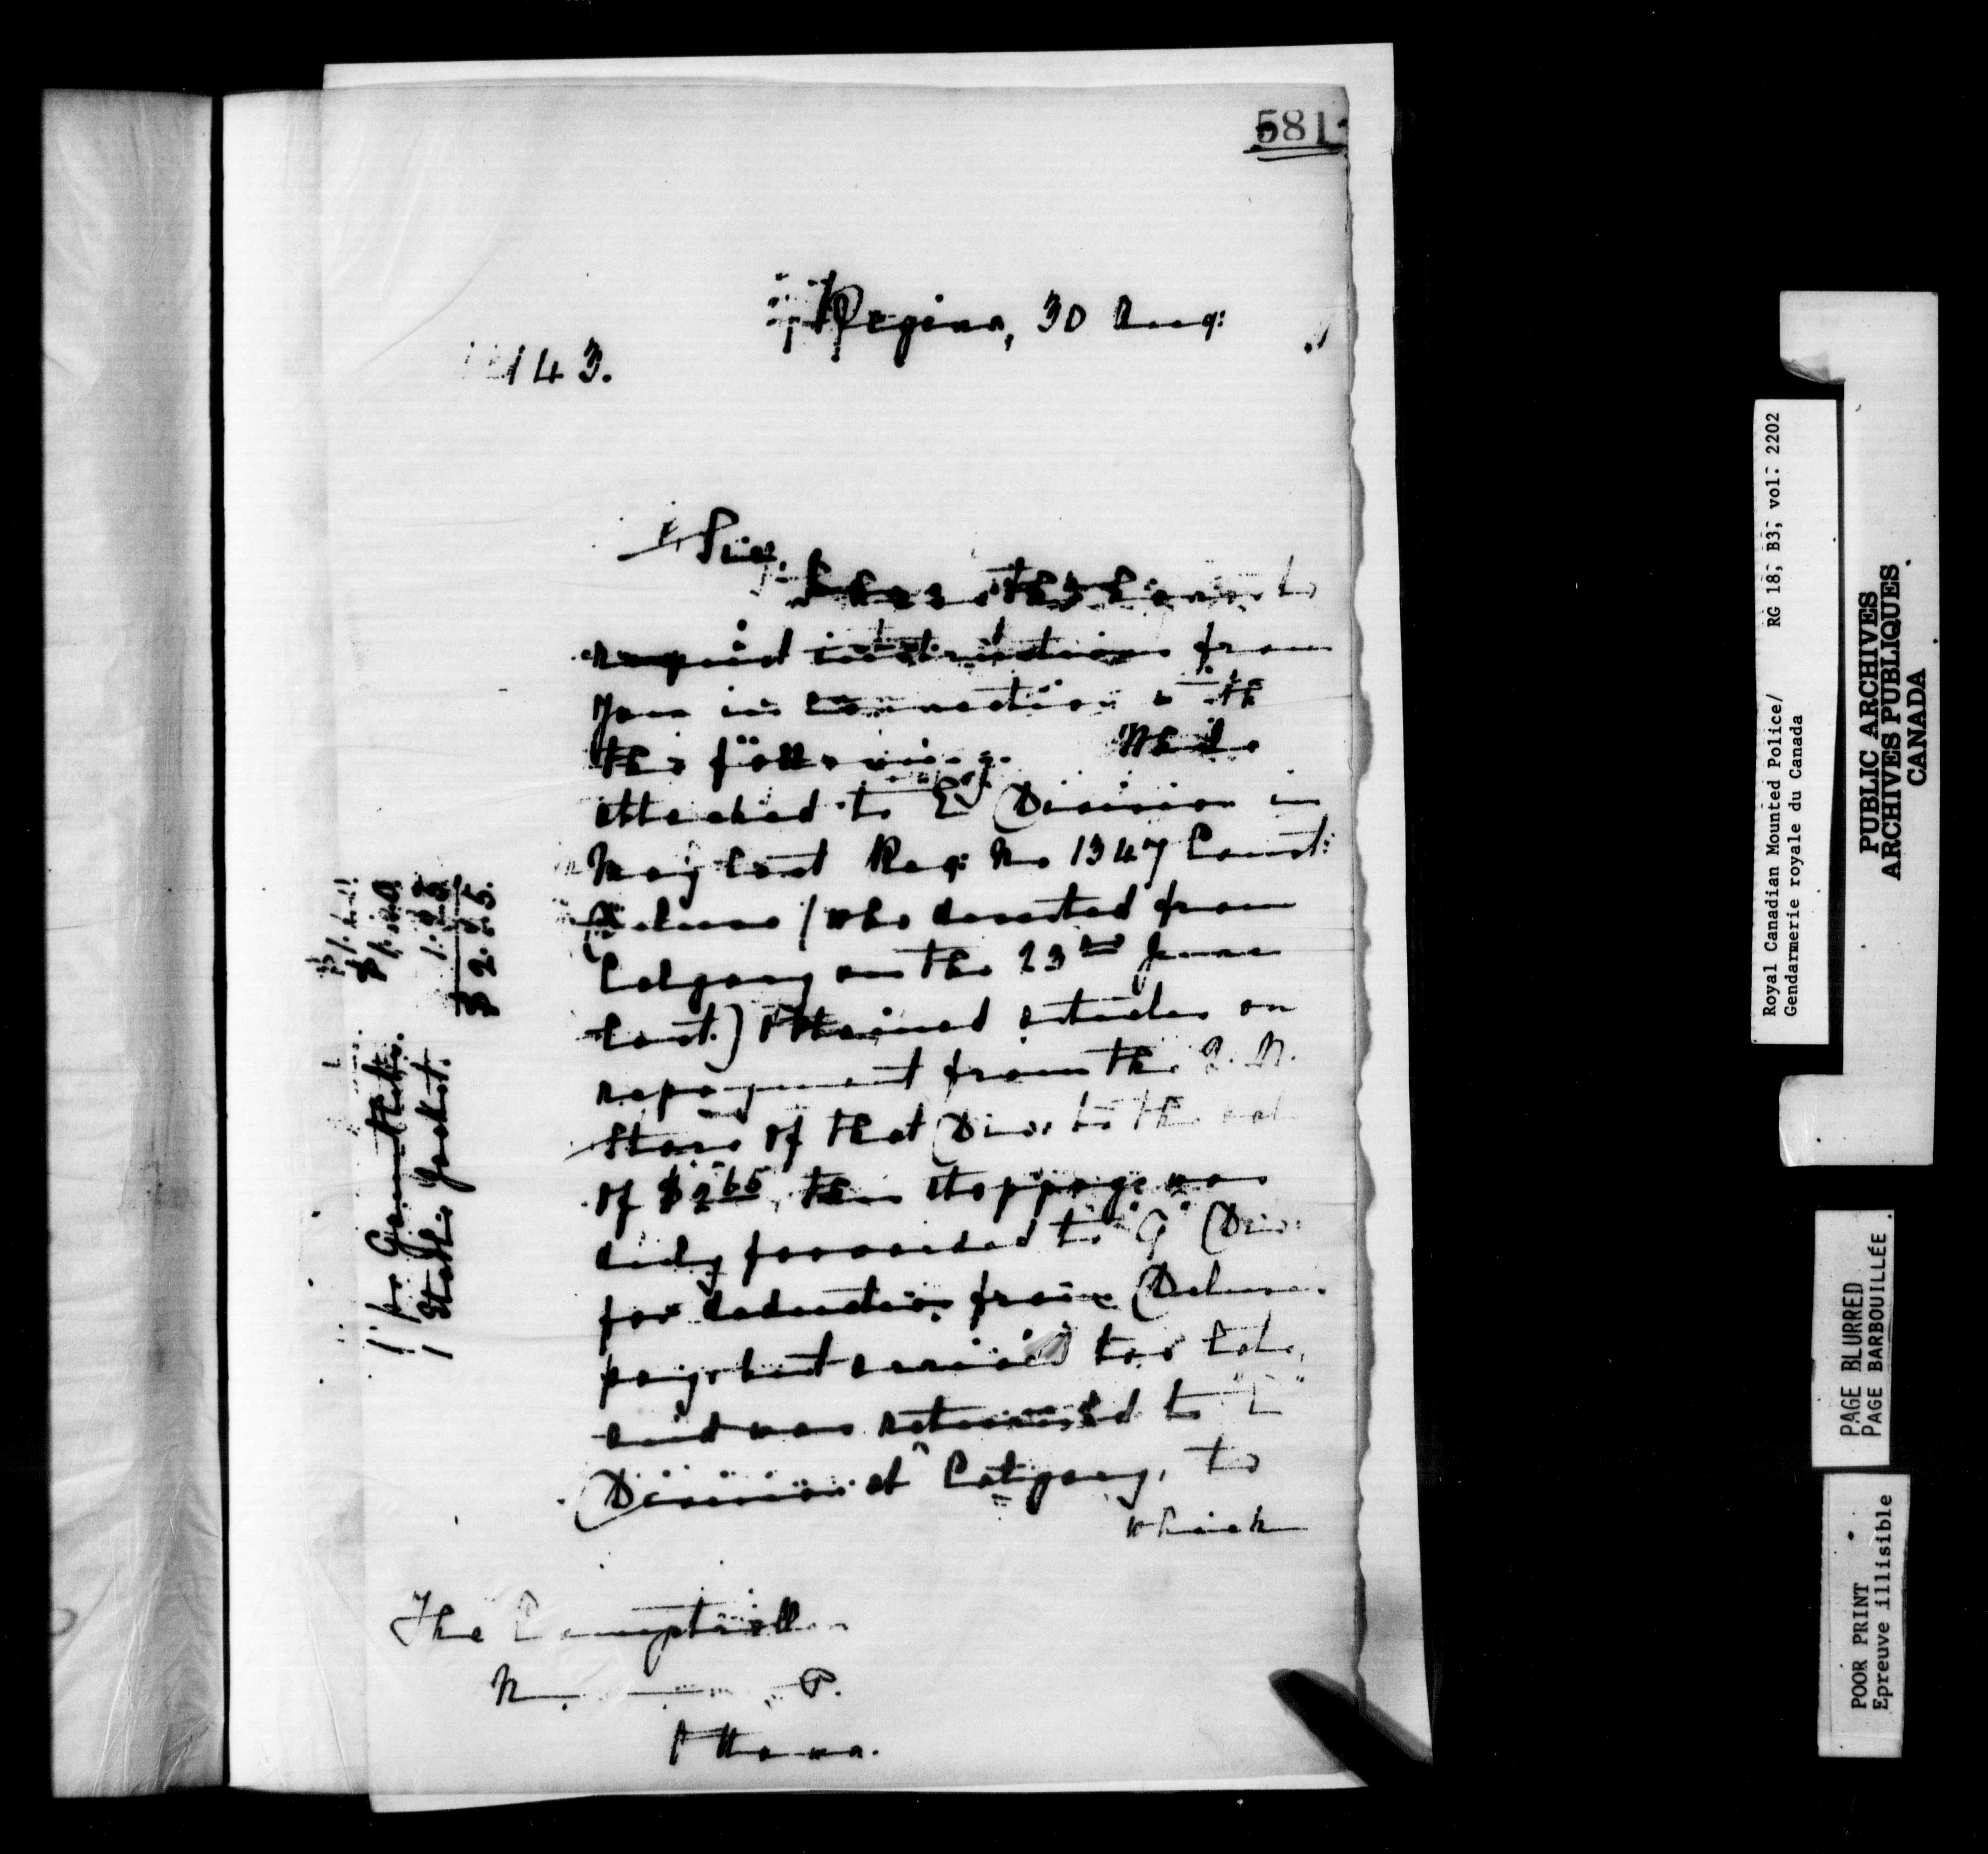 581
Regina, 30 Aug:
143.
Sir,
I have the honor to
request instructions from
you in connection with
the following. While
attached to "E" Division in
May last Reg: No 1347 Const:
(who deserted from
Calgary on the 23rd June
last.) obtained articles on
repayment from the Q. M.
Store of that Divn to the
of $2 65, this stoppage was
duly forwarded to "G" Div:
for deduction from
pay, but arrived too late,
and was returned to "E"
Division at Calgary, to
which
1 pr Gauntlets.
1 Stable Jacket.
$ 2.65.
The Comptroller
N P.
Ottawa.
Royal Canadian Mounted Police/ RG 18; B3; vol: 2202
Gendarmerie royale du Canada
PUBLIC ARCHIVES
ARCHIVES PUBLIQUES
CANADA
PAGE BLURRED
PAGE BARBOUILLÉE
POOR PRINT
Epreuve illisible